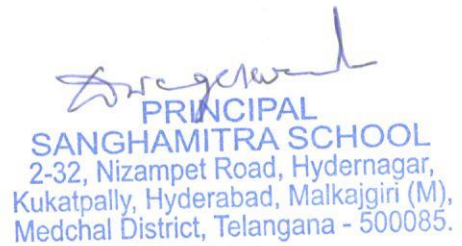 PRINCIPAL
SANGHAMITRA SCHOOL
2-32, Nizampet Road, Hydernagar,
Kukatpally, Hyderabad, Malkajgiri (M),
Medchal District, Telangana - 500085.